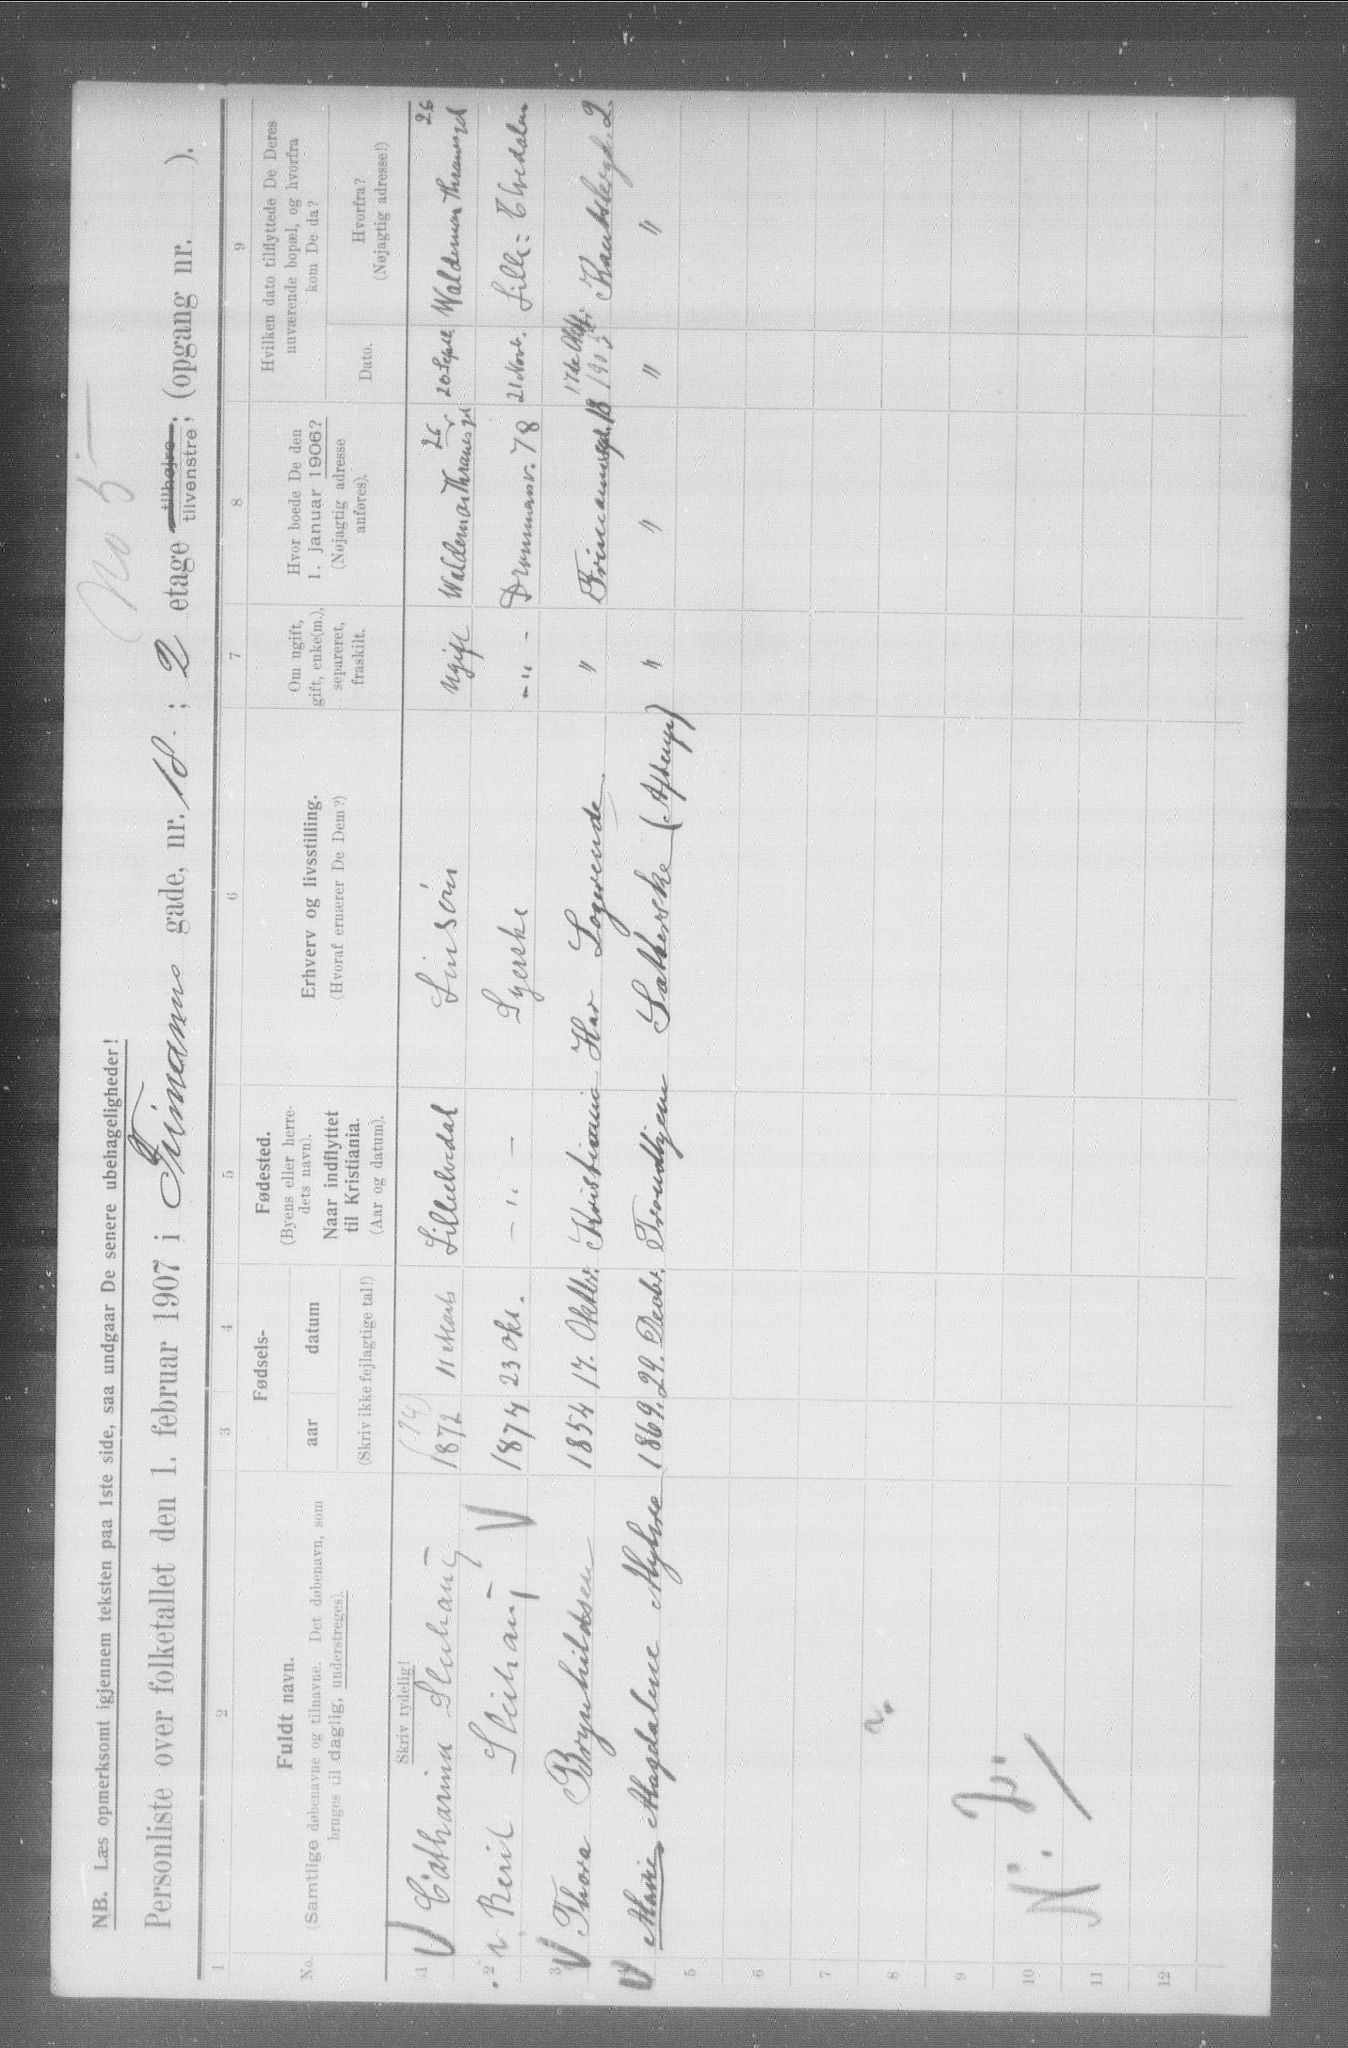 No 5
NB. Læs opmerksomt igjennem teksten paa 1ste side, saa undgaar De senere ubehageligheder!
Personliste over folketallet den 1. februar 1907 i Frimanns gade, nr. 18. ; 2 etage tilhøjre tilvenstre; (opgang nr. ).
1 2 3 4 5 6 7 8 9
No.
Fuldt navn.
(Samtlige døbenavne og tilnavne. Det døbenavn, som
bruges til daglig, understreges).
Fødsels-
aar datum
(Skriv ikke fejlagtige tal!)
Fødested.
(Byens eller herre-
dets navn).
Naar indflyttet
til Kristiania.
(Aar og datum).
Erhverv og livsstilling.
(Hvoraf ernærer De Dem?)
Om ugift,
gift, enke(m.),
separeret,
fraskilt.
Hvor boede De den
1. januar 1906?
(Nøjagtig adresse
anføres).
Hvilken dato tilflyttede De Deres
nuværende bopæl, og hvorfra
kom De da?
Dato.
Hvorfra?
(Nøjagtig adresse!)
Skriv tydelig!
(74)
1 Catharine 1872 11 Marts Lilleelvedal ugift Waldemar Thranesgd 26 20 Sept. Waldemar Thranesgd 26
2 Berit 1874 23 Okt. - " - Syerske - " - Drammensv. 78 21 Novb. Lille Elvedalen
3 Thora Brynhildsen 1854 17. Oktbr. Kristiania Har Logerende. " Frimannsgd. 18 17de Oktbr. 1905 2.
4 Marie Magdalene Myhre 1869. 29. Decbr. Trondhjem " " " "
5
6
7
8
9
10
11
12
a.